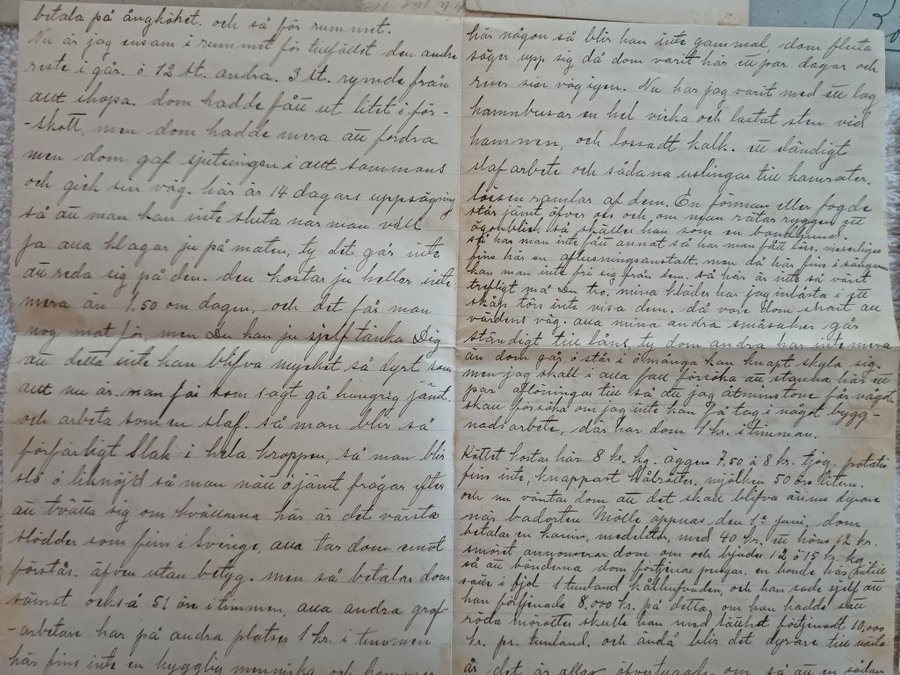 betala på ångköket. och så för rummet.
Nu är jag ensam i rummet för tillfället den andre
reste i går. ö 12 st. andra. 3 st. rymde från
allt ihopa. dom hadde fått ut litet i för-
-skott, men dom hadde mera att fordra
men dom gaf sjutsingen i allt sammans
och gick sin väg. här är 14 dagars uppsägning
så att man kan inte sluta när man vill
Ja alla klagar ju på maten, ty det går inte
att reda sig på den. den kostar ju heller inte
mera än 1,50 om dagen, och det får man
nog mat för, men Du kan ju sjelf tänka Dig
att detta inte kan blifva mycket så dyrt som
allt nu är. man får som sagt gå hungrig jämt.
och arbeta som en slaf. så man blir så
förfärligt slak i hela kroppen, så man blir
slö o liknöjd så man natt ojämt frågar efter
att tvätta sig om kvällarna här är det värsta
slödder som fins i Sverige, alla tar dom emot
förstås. äfven utan betyg. men så betalar dom
sämst också 51 öre i timmen, alla andra grof-
-arbetare har på andra platser 1 kr. i timmen
här fins inte en hygglig menniska och kommer
här någon så blir han inte gammal, dom flesta
säger upp sig då dom varit här ett par dagar och
reser sin väg igen. Nu har jag varit med ett lag
hamnbusar en hel vicka och lastat sten vid
hamnen, och lossadt kalk. ett eländigt
slafarbete och sådana uslingar till kamrater.
lössen ramlar af dem. En förman eller fogde
står jämt öfver oss och om man rätar ryggen ett
ögonblick så skäller han som en bandhund.
så har man inte fått annat så har man fått löss. visserligen
fins här en aflusningsanstalt. men då här fins i sängarna
kan man inte fri sig från dem. så här är inte så värst
trefligt må Du tro. mina kläder har jag inlåsta i ett
skåp törs inte visa dem. då vore dom snart all
världens väg. alla mina andra småsaker går
ständigt till låns, ty dom andra har inte mera
än dom går o står i ölmånga kan knapt skyla sig.
men jag skall i alla fall försöka att stanna här ett
par aflöningar till så att jag åtminstone får vägd
skall försöka om jag inte kan få tag i något bygg-
nadsarbete, där har dom 1 kr. i timman.
Köttet kostar här 8 kr. kg. äggen 7,50 à 8 kr. tjog. potatis
fins inte, knappart kålrötter. mjölken 50 öre litern.
och nu väntar dom att det skall blifva ännu dyrare
när badorten Mölle äppnas den 1:e juni. dom
betalar en kanin, medelstor, med 40 kr. ett höns 12 kr.
smöret annonserar dom om och bjuder 12 à 15 kr. kg.
så att bönderna dom förtjenar pengar. en bonde här
sålde i fjol 1 tunland kålhufvuden, och han sade sjelf att
han förtjenade 8,000 kr. på detta, om han hadde satt
röda morötter skulle han med lätthet förtjenadt 10,000
kr. pr. tunland. och ändå blir det dyrare till nästa
år det är allas öfvertygade om så att en sådan